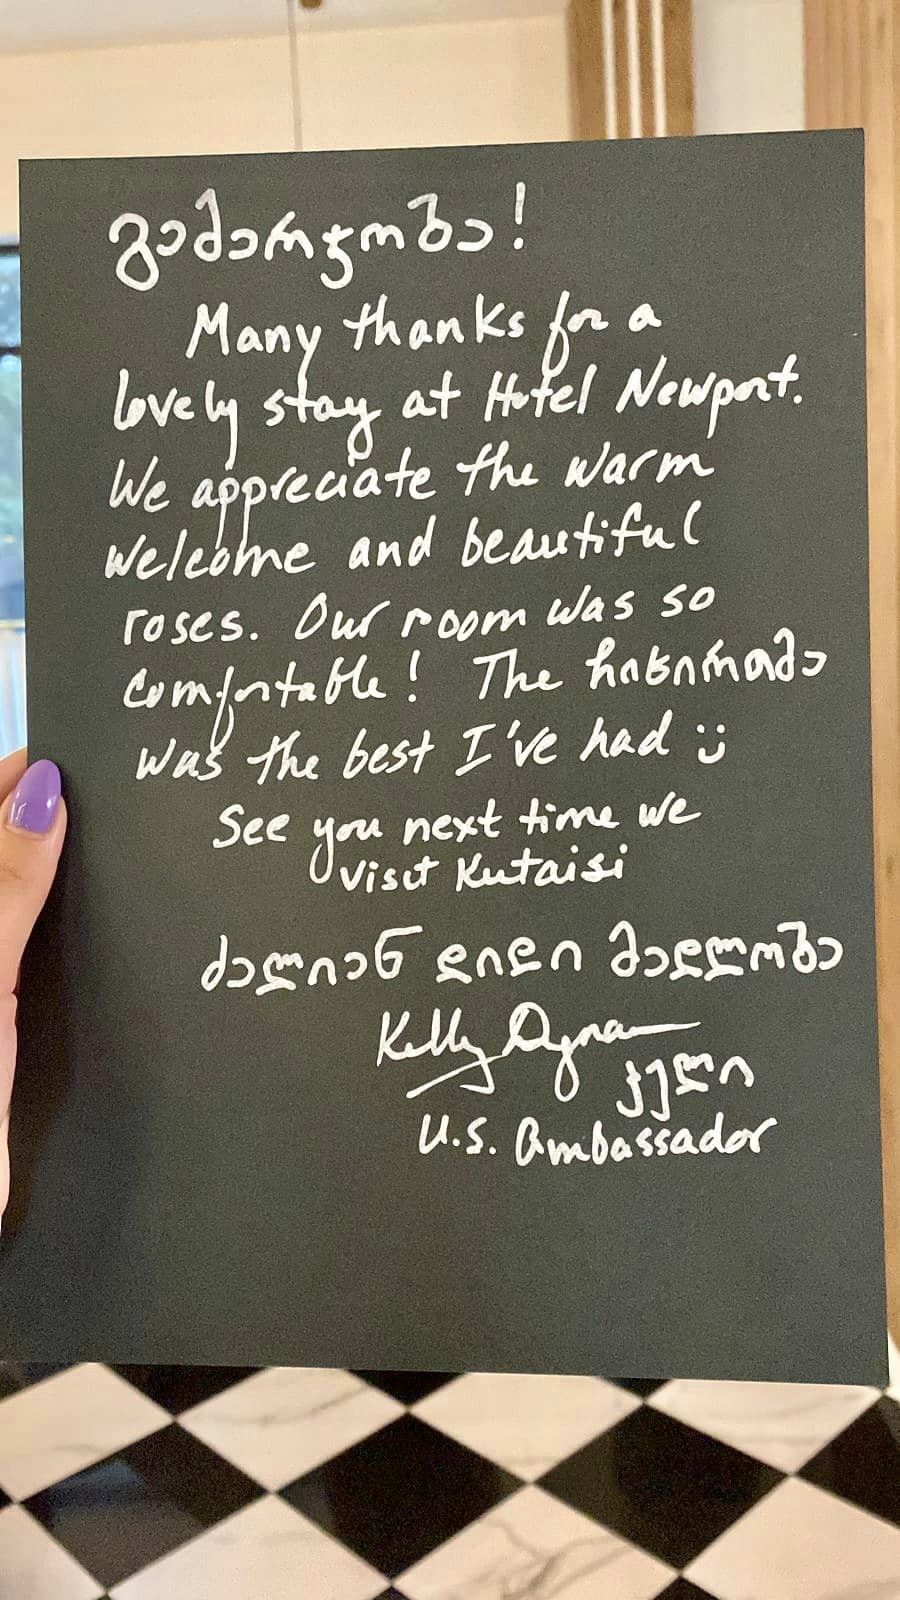 გამარჯობა!
Many thanks for a
lovely stay at Hotel Newport.
We appreciate the warm
welcome and beautiful
roses. Our room was so
comfortable! The ჩიხირთმა
was the best I've had :)
See you next time we
visit Kutaisi
ძალიან დიდი მადლობა
Kelly Degnan
კელი
U.S. Ambassador